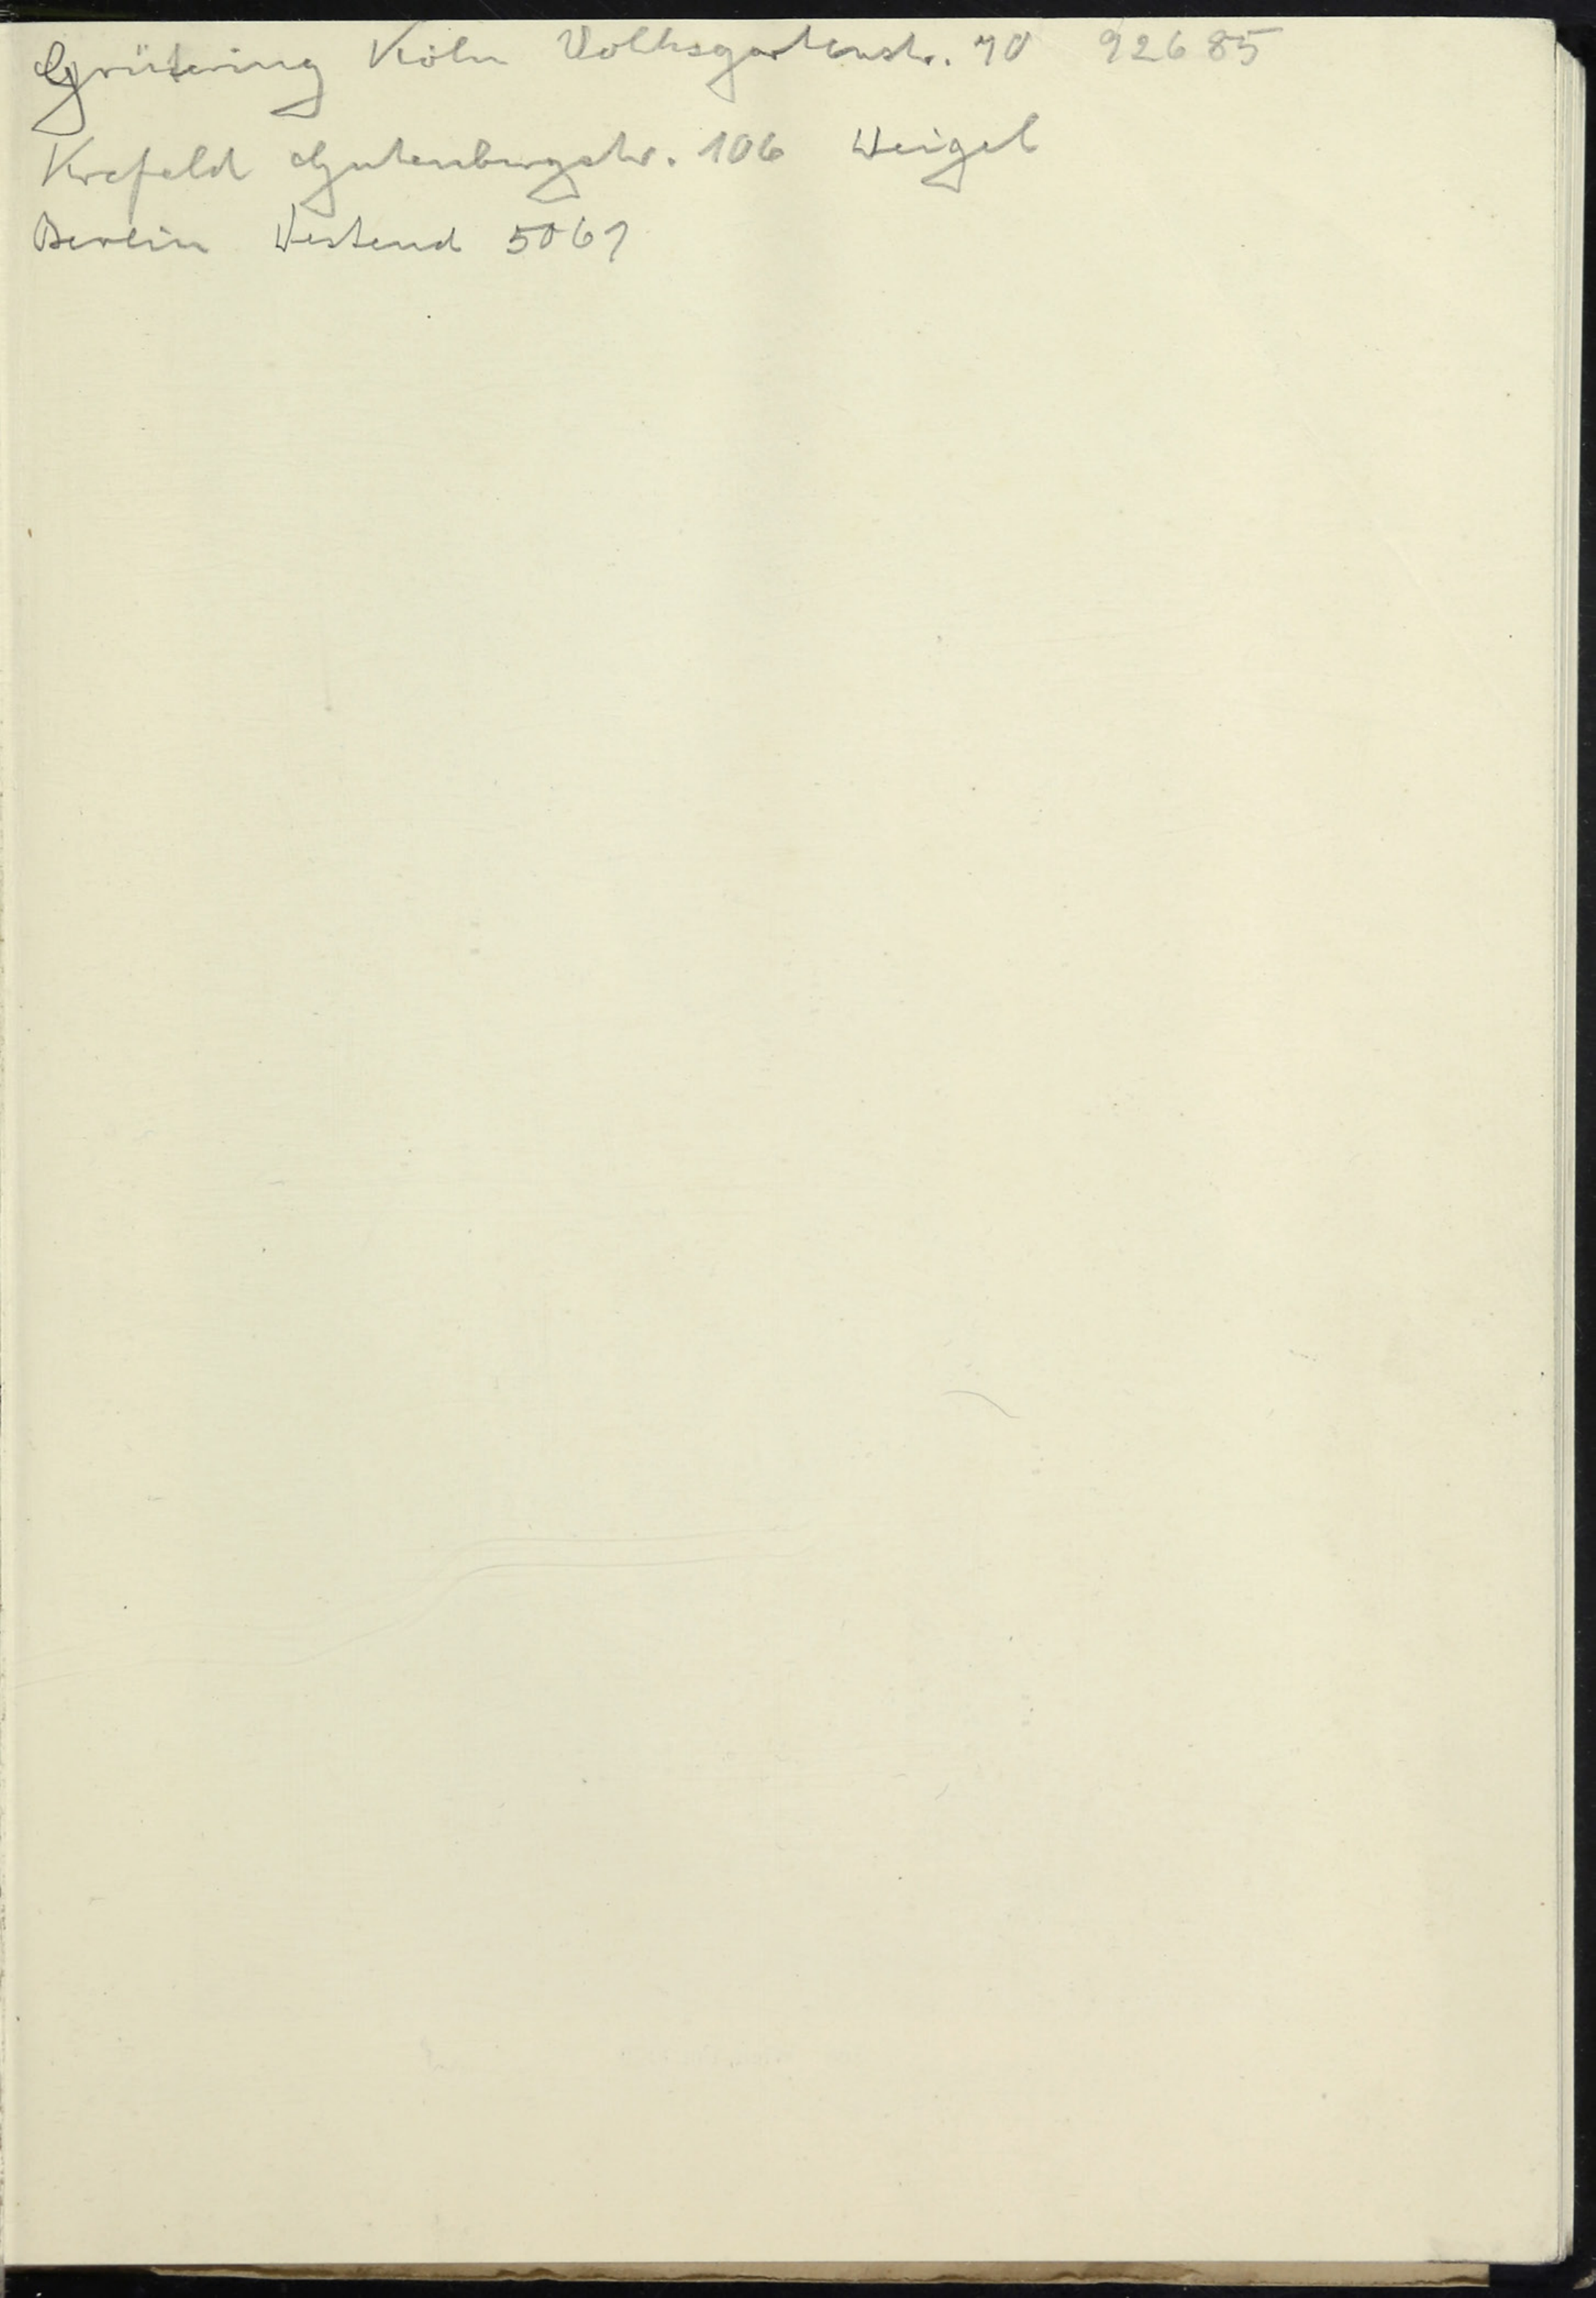 Grütering Köln Volksgartenstr. 10 92685
Krefeld Gutenbergstr. 106 Weigel
Berlin Westend 5061